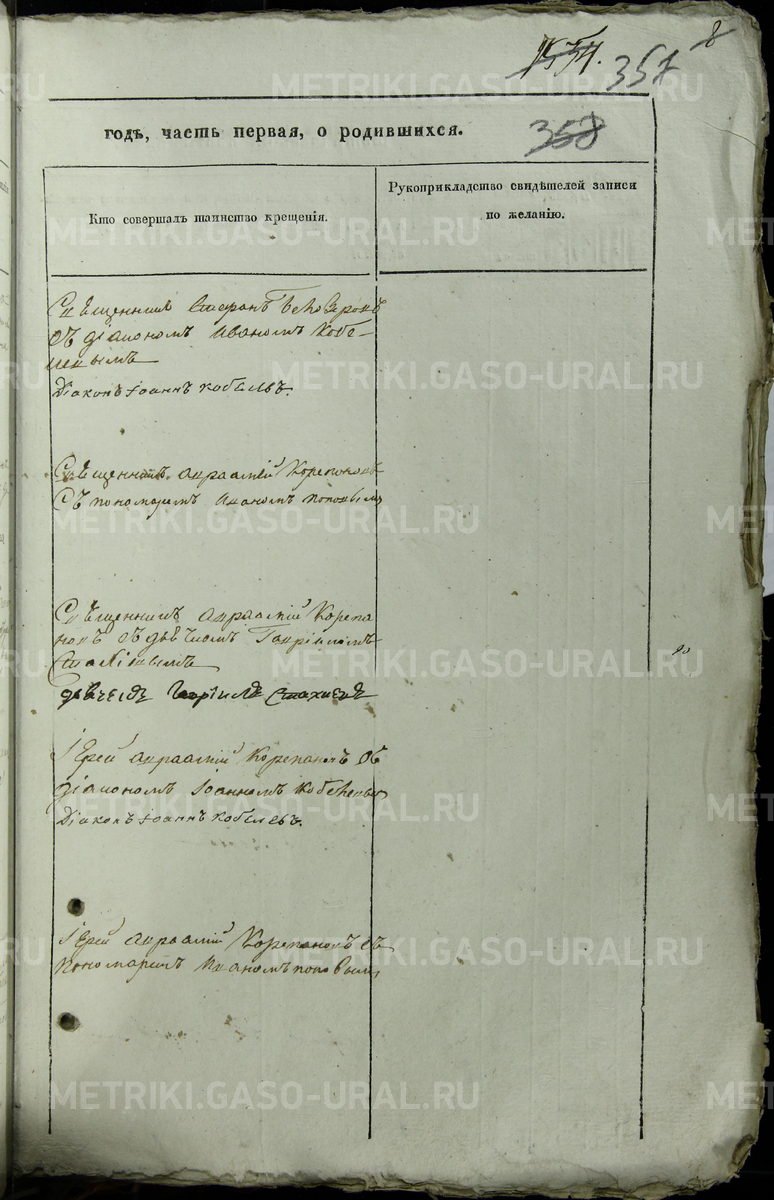 357
8
358
годъ, часть первая, о родившихся.
Кто совершалъ таинство крещенія.
Рукоприкладство свидѣтелей записи
по желанію.
Священникъ Стефанъ
съ діакономъ Иваномъ Кобе-
левымъ
Діаконъ Іоаннъ Кобелевъ.
Священникъ Авраамій Корепановъ
Съ пономаремъ Иваномъ Поповымъ
Священникъ Авраамій Корепа
новъ съ дьячкомъ Гавріиломъ
Стахіевымъ
дьячекъ Гавріилъ Стахиевъ
Іерей Авраамій Корепановъ съ
діакономъ Іоанномъ Кобелевымъ
Діаконъ Іоаннъ Кобелевъ.
Іерей Авраамій Корепановъ съ
Пономаремъ Иваномъ Поповымъ
METRIKI.GASO-URAL.RU